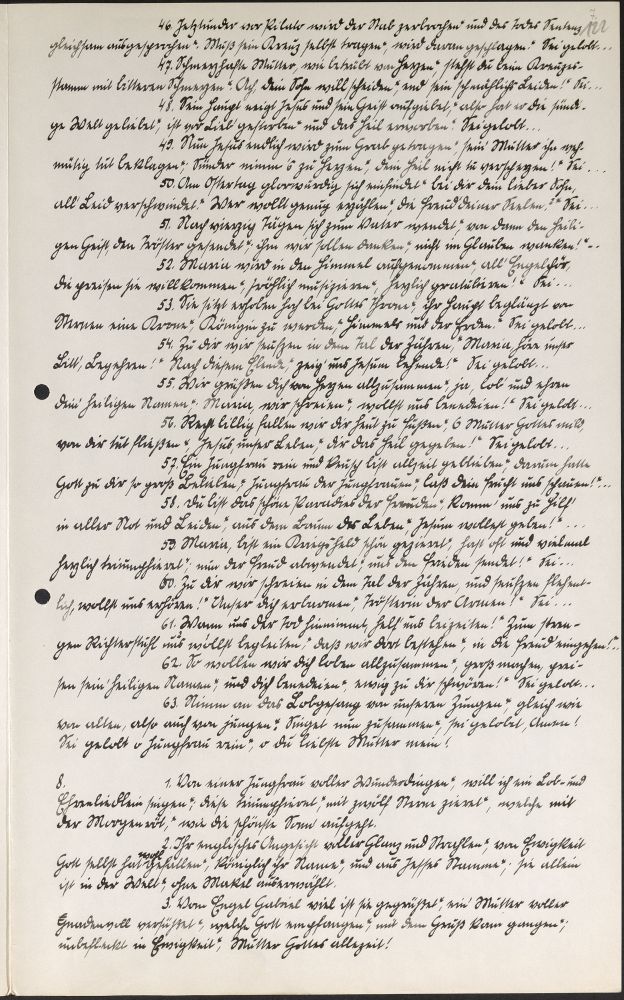 46. Jetztunder vor Pilato wird der Stab zerbrochen" und des Todes Sentenz
gleichsam ausgesprochen". Muß sein Kreuz selbst tragen", wird daran geschlagen." Sei gelobt...
47. Schmerzhafte Mutter, wie betrübt von Herzen" stehst du beim Kreuzes-
stamm mit bitteren Schmerzen". Ach, dein Sohn will scheiden", end sein schmählichs Leiden!" Sei...
48. Sein Haupt neigt Jesus und sein Geist aufgiebet," also hat er die sündi-
ge Welt geliebet", ist vor Lieb' gestorben" und das Heil erworben." Sei gelobt...
49. Nun Jesus endlich wird zum Grab getragen" sein' Mutter ihn weh-
mütig tut beklagen"; Sünder nimm's zu Herzen", dein Heil nicht tu verscherzen!" Sei...
50. Am Ostertag glorwürdig sich einfindet" bei dir dein lieber Sohn,
all' Leid verschwindet." Wer wollt genug erzählen", die Freud deiner Seelen?" Sei...
51. Nach vierzig Tägen sich zum Vater wendet", von dann den Heili-
gen Geist, den Tröster gesendet"; ihm wir sollen danken," nicht im Glauben wanken!"...
52. Maria wird in den Himmel aufgenommen", all' Engelchör,
die preisen sie willkommen", fröhlich musizieren", herzlich gratulieren!" Sei...
53. Sie sitzt erhoben hoch bei Gottes Throne", ihr Haupt beglänzt von
Sternen eine Krone", Königin zu werden," Himmels und der Erden." Sei gelobt...
54. Zu dir wir seufzen in dem Tal der Zähren," Maria, höre unser
Bitt', Begehren!" Nach diesem Elende," zeig' uns Jesum behende!" Sei gelobt...
55. Wir grüßen dich von Herzen allzusammen", ja, lob' und ehren
dein' heiligen Namen". Maria, wir schreien", wollst uns benedeien!" Sei gelobt...
56. Recht billig fallen wir dir heut zu Füßen", O Mutter Gottes
von dir tut fließen", Jesus, unser Leben," dir das Heil gegeben!" Sei gelobt...
57. Ein Jungfrau rein und keusch bist allzeit geblieben," darum hatte
Gott zu dir so groß Belieben," Jungfrau der Jungfrauen," laß dein Frucht uns schauen!"...
58. Du bist das schöne Paradies der Freuden", komm' uns zu Hilf'
in aller Not und Leiden," aus dem Baum des Leben" Jesum wollest geben!"...
59. Maria, bist ein Kriegsheld schön gezieret", hast oft und vielmal
herzlich triumphieret"; nun der Feind abwendet," uns den Frieden sendet!" Sei...
60. Zu dir wir schreien in dem Tal der Zähren, und seufzen flehent-
lich, wollst uns erhören!" Unser dich erbarmen," Trösterin der Armen!" Sei...
61. Wann uns der Tod hinnimmt, helf' uns beizeiten!" Zum stren-
gen Richterstuhl uns wollst begleiten," daß wir dort bestehen", in die Freud eingehen!"...
62. So wollen wir dich loben allzusammen", groß machen, prei-
sen sein' heiligen Namen", und dich benedeien", ewig zu dir schreien!" Sei gelobt...
63. Nimm an das Lobgesang von unseren Zungen", gleich wie
von alten, also auch von jungen". Singet nun zusammen", sei gelobet, Amen!
Sei gelobt o Jungfrau rein", o du liebste Mutter mein!
8. 1. Von einer Jungfrau voller Wunderdingen", will ich ein Lob- und
Ehrenliedlein singen", diese triumphieret", mit zwölf Sterne zieret", welche mit
der Morgenröt," wie die schönste Sonn' aufgeht.
2. Ihr englisches Angesicht voller Glanz und Strahlen", von Ewigkeit
Gott selbst hat wohlgefallen", königlich ihr Name", und aus Jesses Stamme"; sie allein
ist in der Welt", ohne Makel auserwählt.
3. Vom Engel Gabriel viel ist sie gegrüßet", ein' Mutter voller
Gnadenvoll versüßet", welche Gott empfangen", mit dem Gruß kam gangen";
unbefleckt in Ewigkeit", Mutter Gottes allezeit!